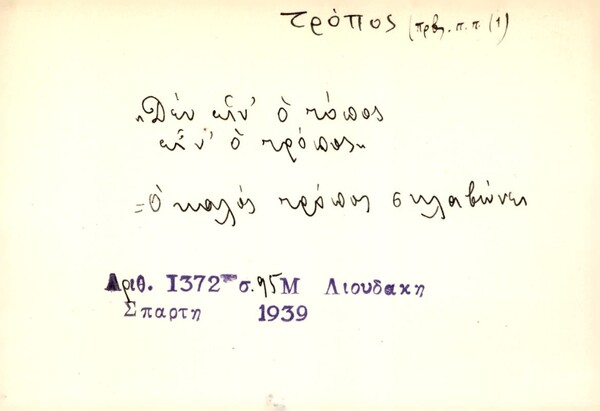 τρόπος (πρβ. π.π. (1)
„Δὲν εἶν' ὁ τόπος
εἶν' ὁ τρόπος"
= Ὁ καλός τρόπος σκλαβώνει
Αριθ. 1372 σ. 95 Μ Λιουδακη
Σπαρτη 1939